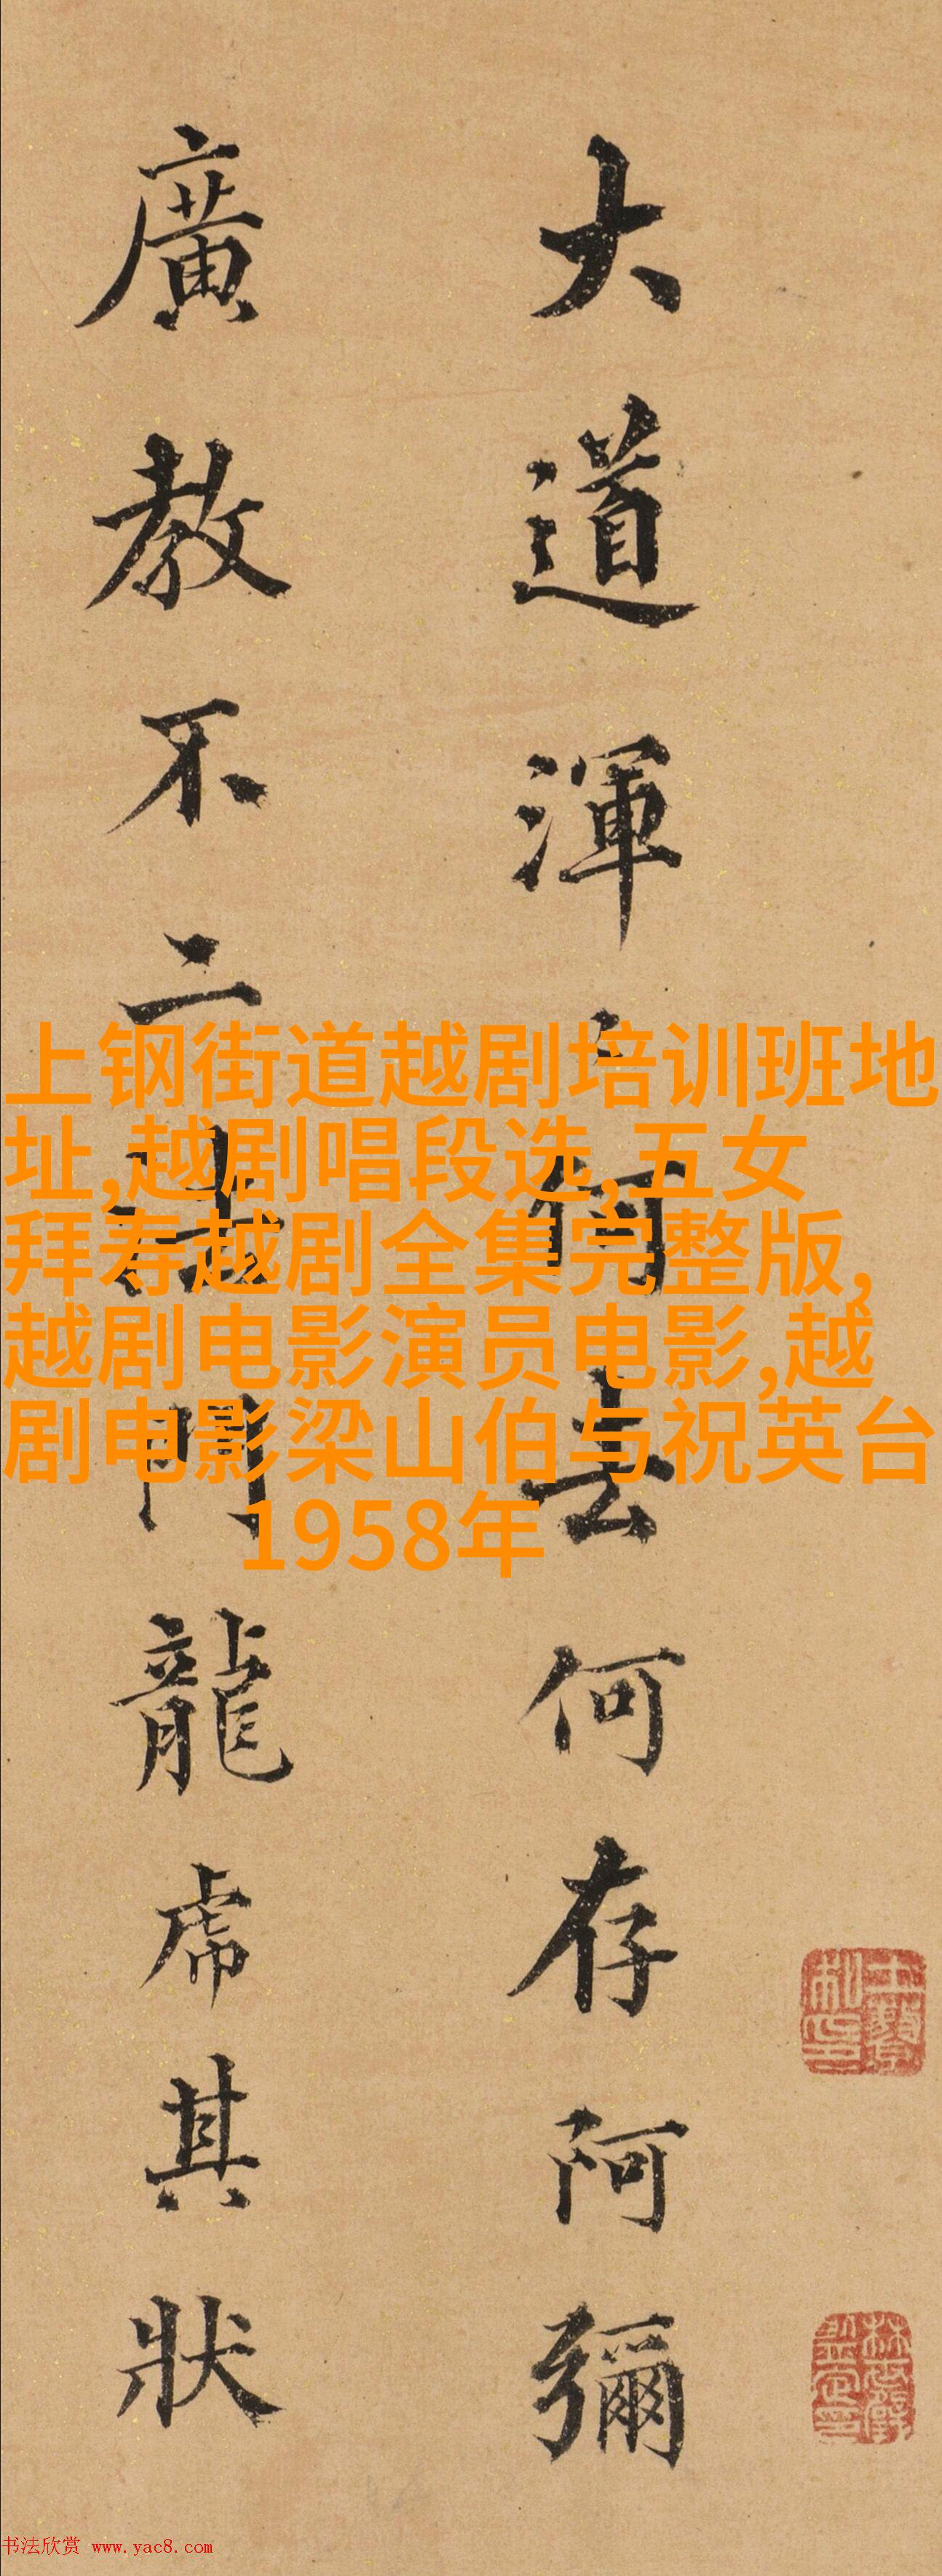 大道渾何去何存阿彌
廣教不二法門龍虎其狀
上钢街道越剧培训班地
址,越剧唱段选,五女
拜寿越剧全集完整版,
越剧电影演员电影,越
剧电影梁山伯与祝英台
1958年
书法欣赏 www.yac8.com